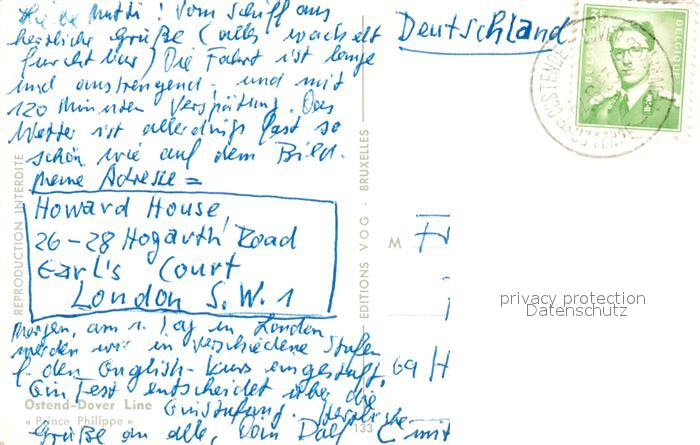 Liebe Mutti! Vom Schiff aus
herzliche Grüße (alles wackelt
furchtbar) Die Fahrt ist lange
und anstrengend, und mit
120 Minuten Verspätung. Das
Wetter ist allerdings fast so
schön wie auf dem Bild.
Meine Adresse =
Howard House,
26-28 Hogarth Road
Earl's Court
London S.W.1
Morgen, am 1. Tag in London
werden wir in verschiedene Stufen
f. den English-Kurs eingestuft,
Ein Test entscheidet über die
Einstufung. Herzliche
Grüße an alle, Vom
Ostend-Dover Line
« Prince Philippe »
REPRODUCTION INTERDITE
EDITIONS VOG - BRUXELLES
133
Deutschland
BELGIE-BELGIQUE
OSTENDE DOVER
M
69 H
privacy protection
Datenschutz